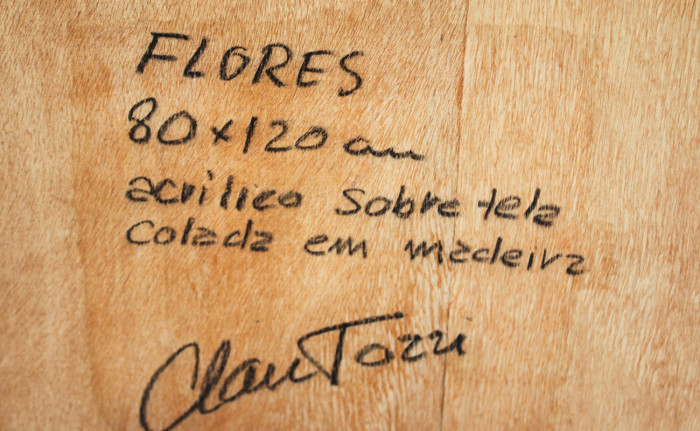 FLORES
80x120 cm
acrilico sobre tela
colada em madeira
Claudio Tozzi